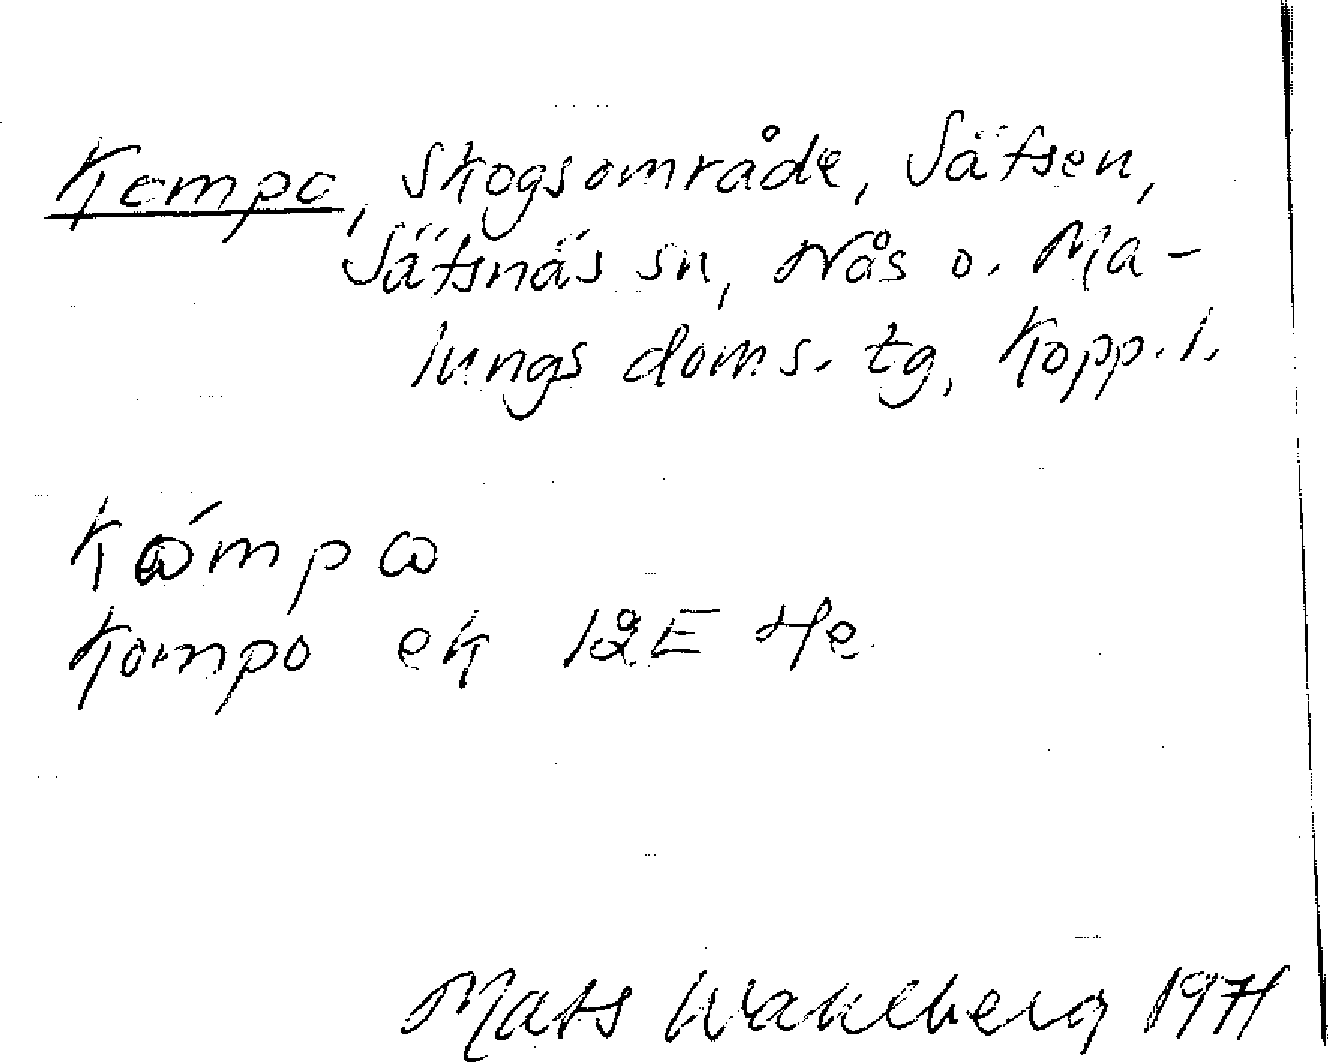 Kompo, skogsområde, Sätsen,
Sätsnäs sn, Nås o. Ma-
lungs doms. tg, Kopp. l.
Kompo ek 12E 4e
Mats Wahlberg 1971